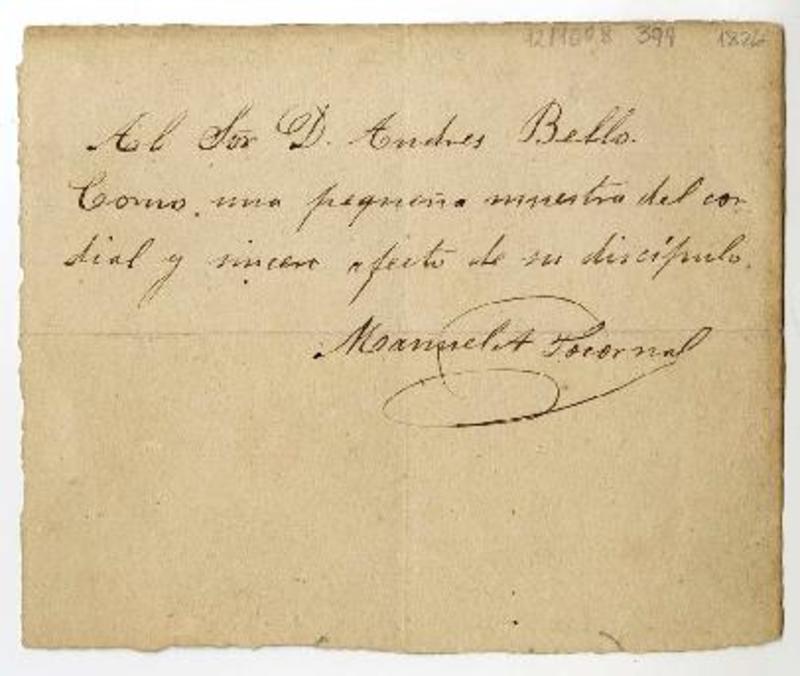 399 1826
Al Sor D. Andres Bello.
Como una pequeña muestra del cor-
dial y sincero afecto de su discípulo.
Manuel A Tocornal